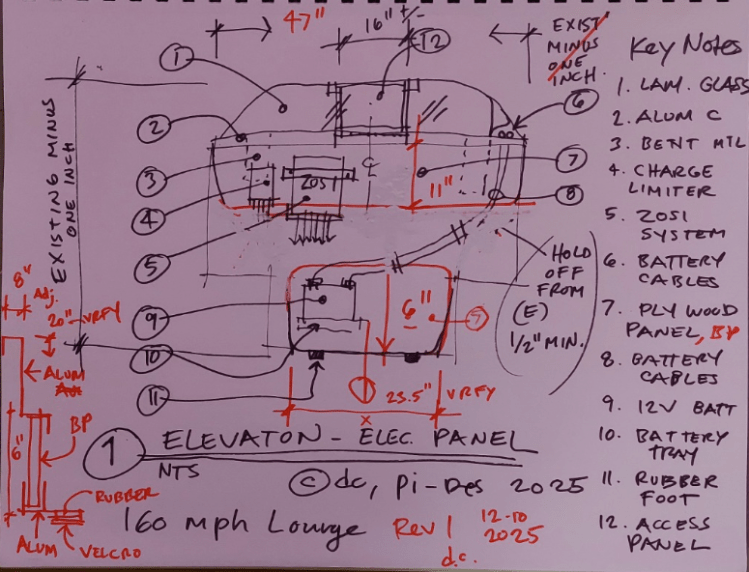 47"
16" +/-
EXIST
MINUS
ONE
INCH.
Key Notes
1. LAM. GLASS
2. ALUM C
3. BENT MTL
4. CHARGE
LIMITER
5. ZOSI
SYSTEM
6. BATTERY
CABLES
7. PLYWOOD
PANEL, BP
8. BATTERY
CABLES
9. 12V BATT
10. BATTERY
TRAY
11. RUBBER
FOOT
12. ACCESS
PANEL
EXISTING MINUS
ONE INCH
1
12
2
6
3
7
4
8
5
ZOSI
CL
11"
HOLD
OFF
FROM
(E)
1/2" MIN.
8"
Adj.
20" - VRFY
9
6"
7
ALUM
10
11
23.5" VRFY
X
BP
6"
RUBBER
ALUM
VELCRO
1 ELEVATON - ELEC. PANEL
NTS
© dc, Pi-Des 2025
160 mph Lounge Rev 1 12-10
2025
d.c.